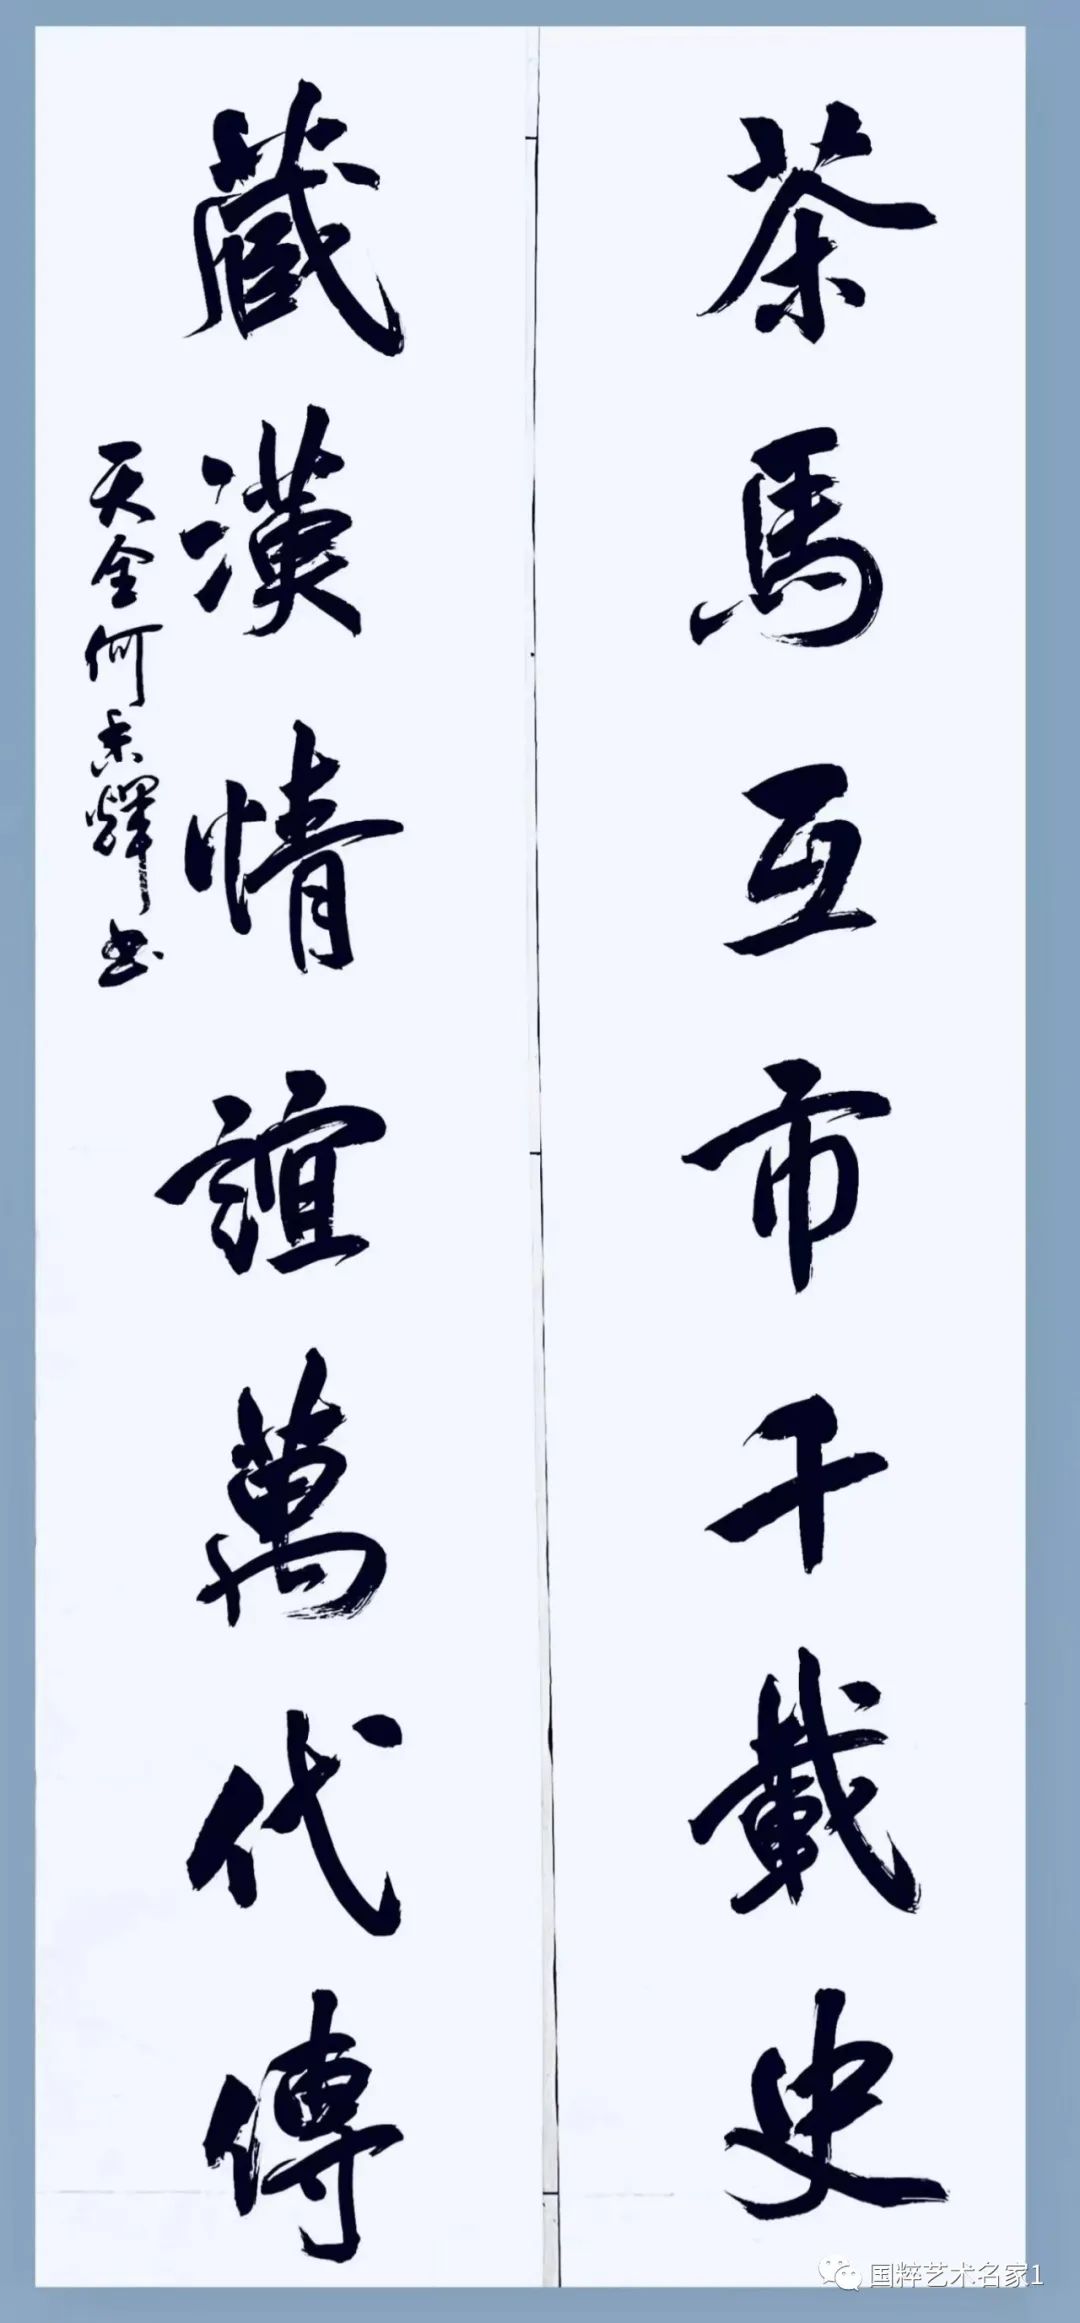 茶馬互市千載史
藏漢情誼萬代傳
天全何志輝书
国粹艺术名家1